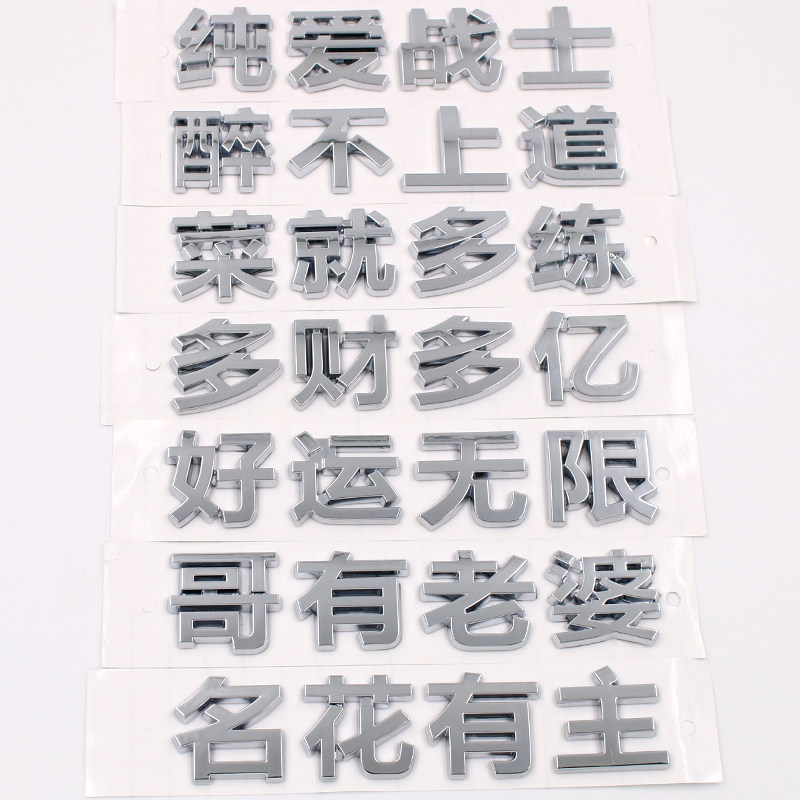 纯爱战士
醉不上道
菜就多练
多财多亿
好运无限
哥有老婆
名花有主